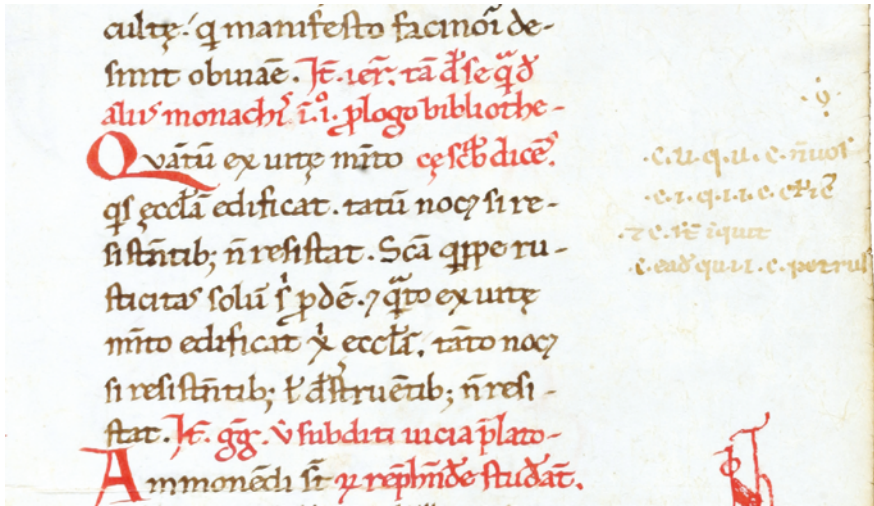 cultę. q̄ manifesto facinori de-
sinit obuiāe. Jt̄. ier̄. tā d̄se q̄d
alius monach' i. i°. plogo bibliothe-
Qvātū ex uitę m̄ito cę sc̄b dice.
q̄s ęccl̄ā edificat. tātū nocꝫ si re-
sistn̄tib; n̄ resistat. Sc̄a q̄ppe ru-
sticitas solū s' pdē. ⁊ q̄to ex uitę
m̄ito edificat xp̄i ęccl̄s. tāto nocꝫ
si resistn̄tib; ł d̄struētib; n̄ resi-
stat. Jt̄. gg̅. ū subditi uicia p̄lato-
Ammonēdi s̄t ꝝ rep̄hn̄de studēat̄.
.c.u.q.u.c. n̄uos
.c.i.q.i.i.c.
⁊ c. it̄ īquit
.c. ead̄ qu.i.i.c. petrus